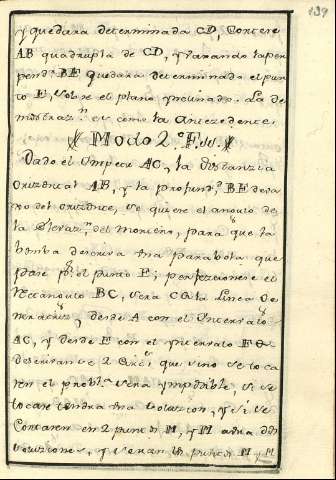 139
y quedara determinada CD, Cortese
AB quadrupla de CD, y tirando la per
pend.r BE quedara determinado el pun
to E, sobre el plano ynclinado. La de
mostraz.n es como la Antezedente
Modo 2.º F.
Dado el Ympetu AC, la Distanzia
Orizontal AB, y la profund.d BE deba
xo del orizonte, se quiere el angulo de
la Elevaz.n del Mortero, para que la
bomba descriva una Parabola que
pase p.r el punto E; perfezionese el
Rectangulo BC, sera CO la Linea De
desde A con el Ynterbalo
AC, y desde E con el ynterbalo EO
descrivanse 2 que sino se toca
ren el probl.a sera ymposible, si se
tocare tendra una Solucion, y si se
Cortaren en 2 puntos M, y M abra dos
soluziones, y seran los puntos M y M